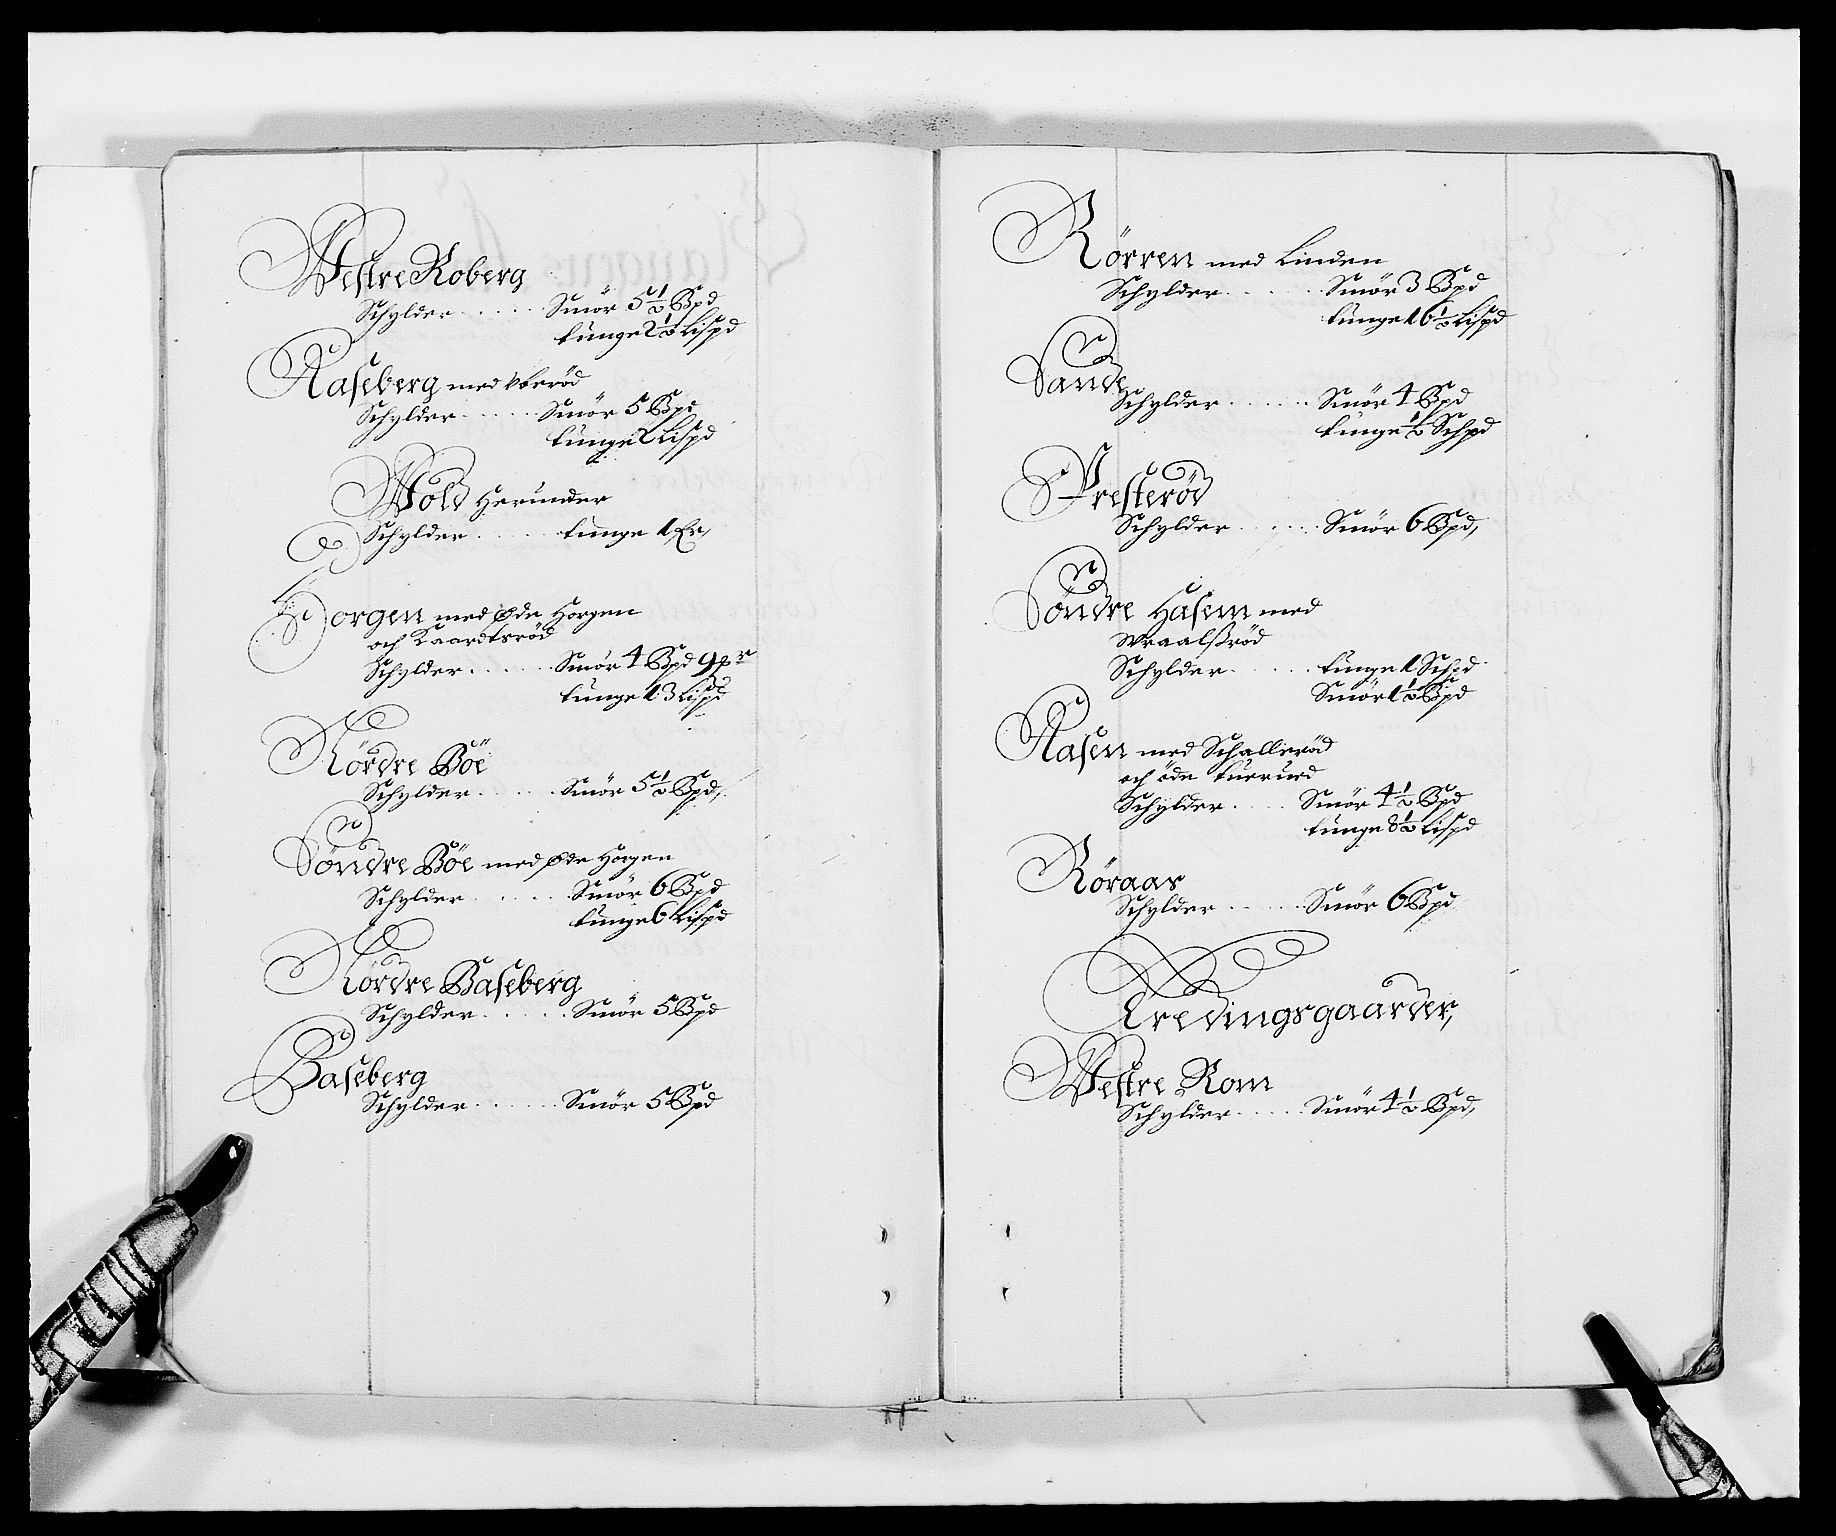 Westre Roberg
Schylder . . . . . . Smör 5½ Bpd
tunge 2½ Lispd
Aaseberg med
Schylder . . . . . . Smör 5 Bpd
tunge 2 Lispd
Wold Herunder
Schylder . . . . . tunge 1
Horgen med Øde Horgen
och Kaardtsröd
Schylder . . . . . . Smör 4 Bpd 9
tunge 13 Lispd
Nördre Böe
Schylder . . . . . . Smör 5½ Bpd,
Söndre Böe med øde Horgen
Schylder . . . . . . Smör 6 Bpd
tunge 6 Lispd
Nördre Baseberg
Schylder . . . . . . Smör 5 Bpd
Baseberg
Schylder . . . . . . Smör 5 Bpd
Rörren med Linden
Schylder . . . . . . Smör 3 Bpd
tunge 16½ Lispd
Sande
Schylder . . . . . . Smör 4 Bpd
tunge ½ Schpd
Presteröd
Schylder . . . . . . Smör 6 Bpd,
Söndre Hasem med
Wraalsröd
Schylder . . . . . . tunge 1 Schpd
Smör 1½ Bpd
Aasen med Schalleröd
och öde
Schylder . . . . Smör 4½ Bpd
tunge 8½ Lispd
Röraas
Schylder . . . . . Smör 6 Bpd
Tredingsgaarder,
Westre Rom
Schylder . . . . . Smör 4½ Bpd,